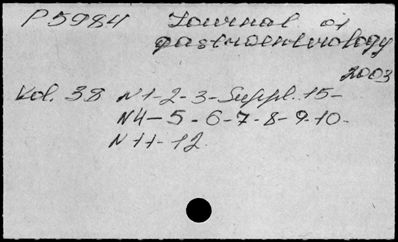 P5984 Journal of
gastroenterology
2003
Vol. 38 N1-2-3-Suppl. 15-
N4-5-6-7-8-9-10-
N11-12.